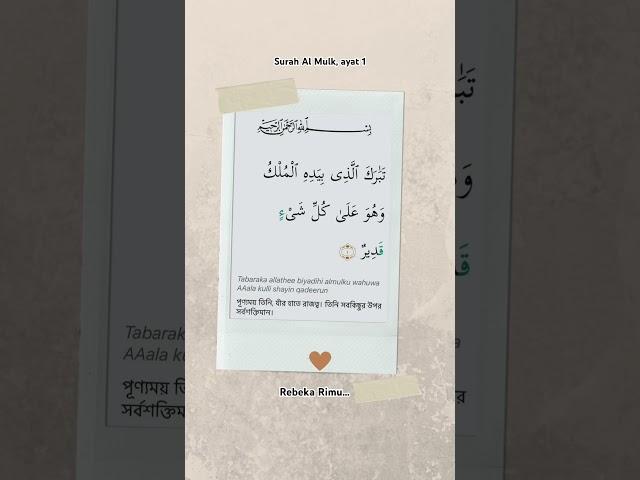 Surah Al Mulk, ayat 1
بِسْمِ اللَّهِ الرَّحْمَٰنِ الرَّحِيمِ
تَبَٰرَكَ ٱلَّذِى بِيَدِهِ ٱلْمُلْكُ
وَهُوَ عَلَىٰ كُلِّ شَىْءٍ
قَدِيرٌ ١
Tabaraka allathee biyadihi almulku wahuwa
AAala kulli shayin qadeerun
পূণ্যময় তিনি, যাঁর হাতে রাজত্ব। তিনি সবকিছুর উপর
সর্বশক্তিমান।
Rebeka Rimu...